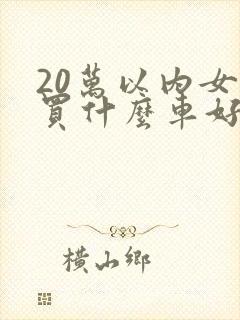 20萬以内女
買什麼車好
橫山鄉